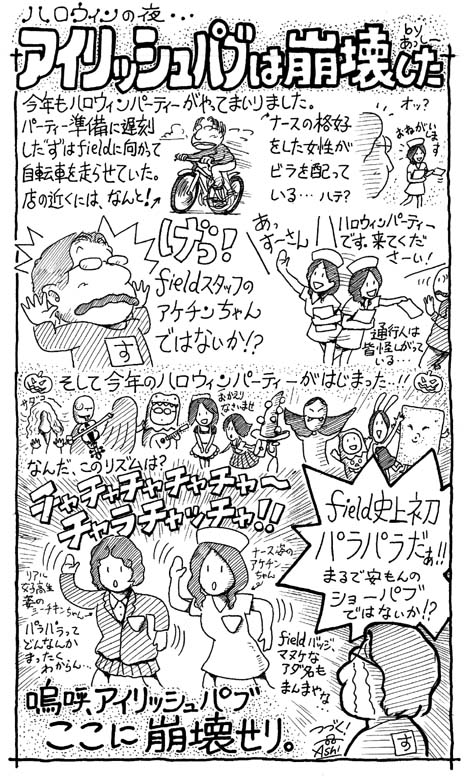 ハロウィンの夜・・・
アイリッシュパブは崩壊した
by あっしー
今年もハロウィンパーティーがやってまいりました。
パーティー準備に遅刻
した"ず"はfieldに向かって
自転車を走らせていた。
店の近くには、なんと!
オッ?
おねがいします
ナースの格好
をした女性が
ビラを配って
いる…ハテ?
げっ!
fieldスタッフの
アケチンちゃん
ではないか!?
す
あっ
すーさん
ハロウィンパーティー
です。来てくだ
さーい!
通行人は
皆怪しがって
いる…
そして今年のハロウィンパーティーがはじまった…!!
サダコ
おかえり
なさいませ
なんだ、このリズムは?
チャチャチャチャチャ〜
チャラチャッチャ!!
field史上初
パラパラだぁ!!
まるで安もんの
ショーパブ
ではないか!?
リアル
女子高生
姿の
ミーチキンちゃん
パラパラって
どんなんか
まったく
わからん…
ナース姿の
アケチン
ちゃん
fieldバッジ、
マヌケな
アダ名も
まんまやな
嗚呼、アイリッシュパブ
ここに崩壊せり。
つづく!
ASHI
す